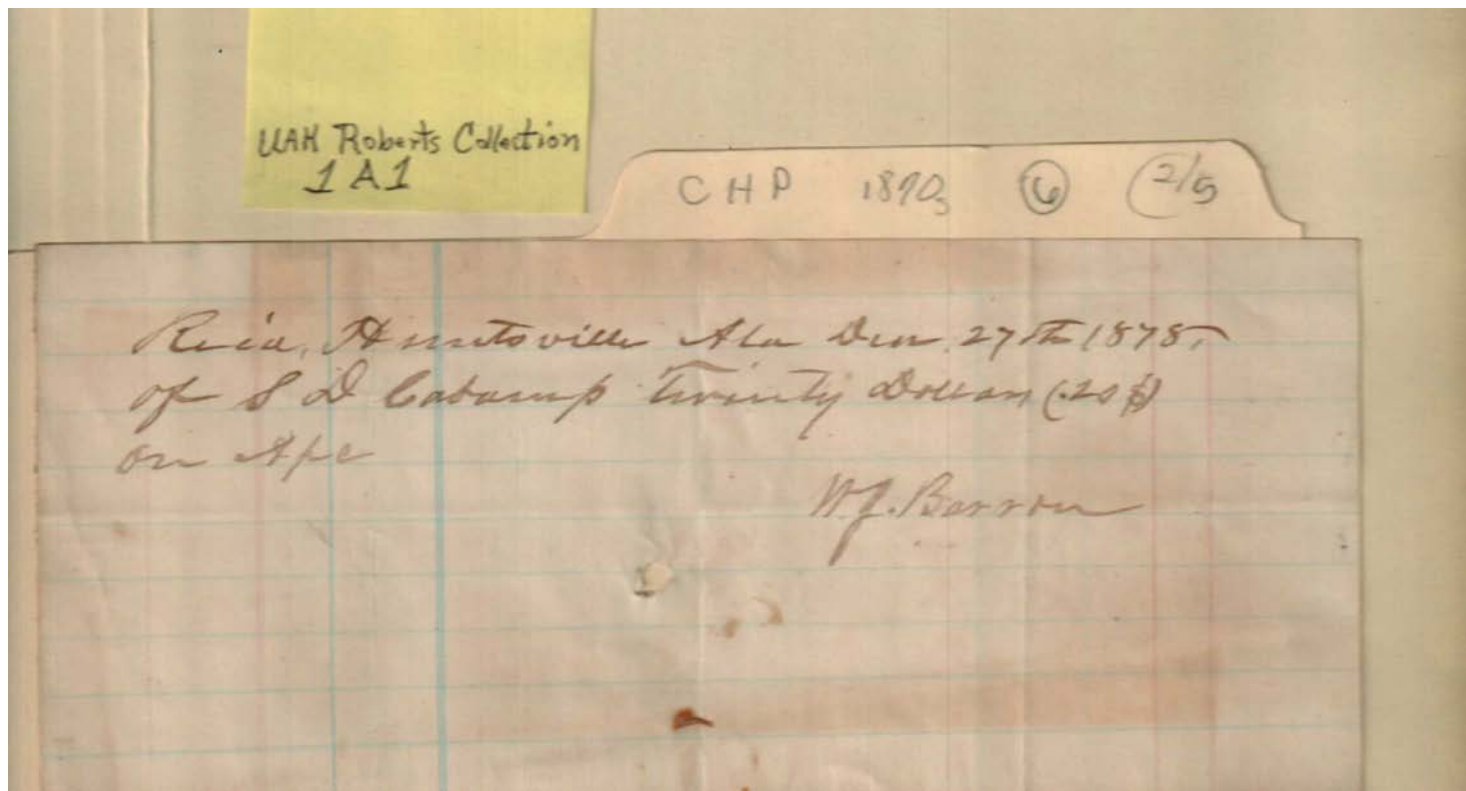 UAH Roberts Collection
1A1
CHP 1870s 6 2/5
Huntsville Ala 27th 1878
of S D Twenty Dollars (20$)
on
W.J. Barron